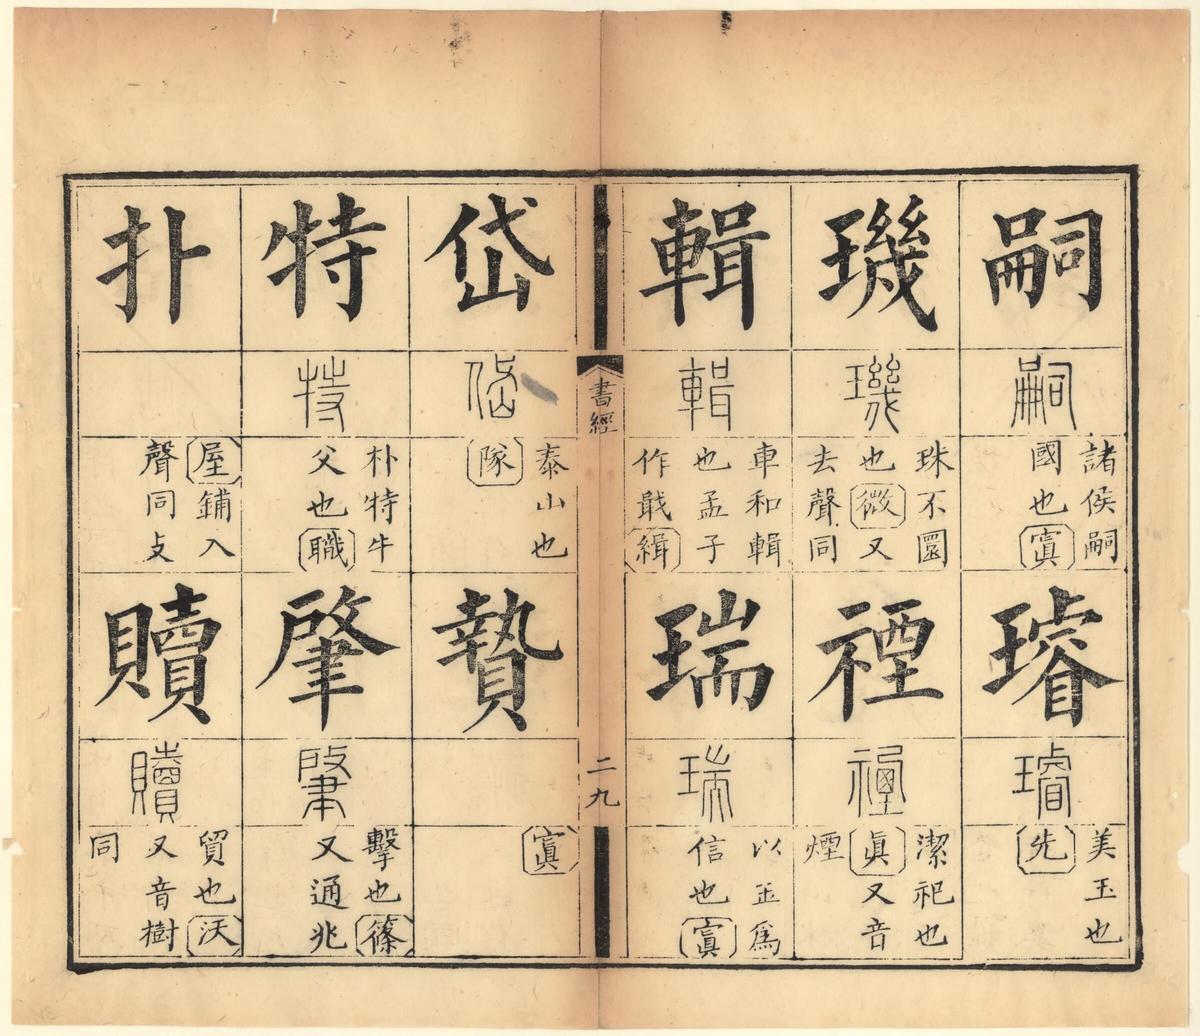 嗣
嗣
諸侯嗣
國也寘
璿
璿
美玉也
先
璣
璣
珠不圜
也微又
去聲同
禋
禋
潔祀也
眞又音
煙
輯
輯
車和輯
也孟子
作戢緝
瑞
瑞
以玉爲
信也寘
書經
二九
岱
岱
泰山也
隊
贄
寘
特
特
朴特牛
父也職
肇
肇
擊也篠
又通兆
扑
屋鋪入
聲同攴
贖
贖
貿也沃
又音樹
同